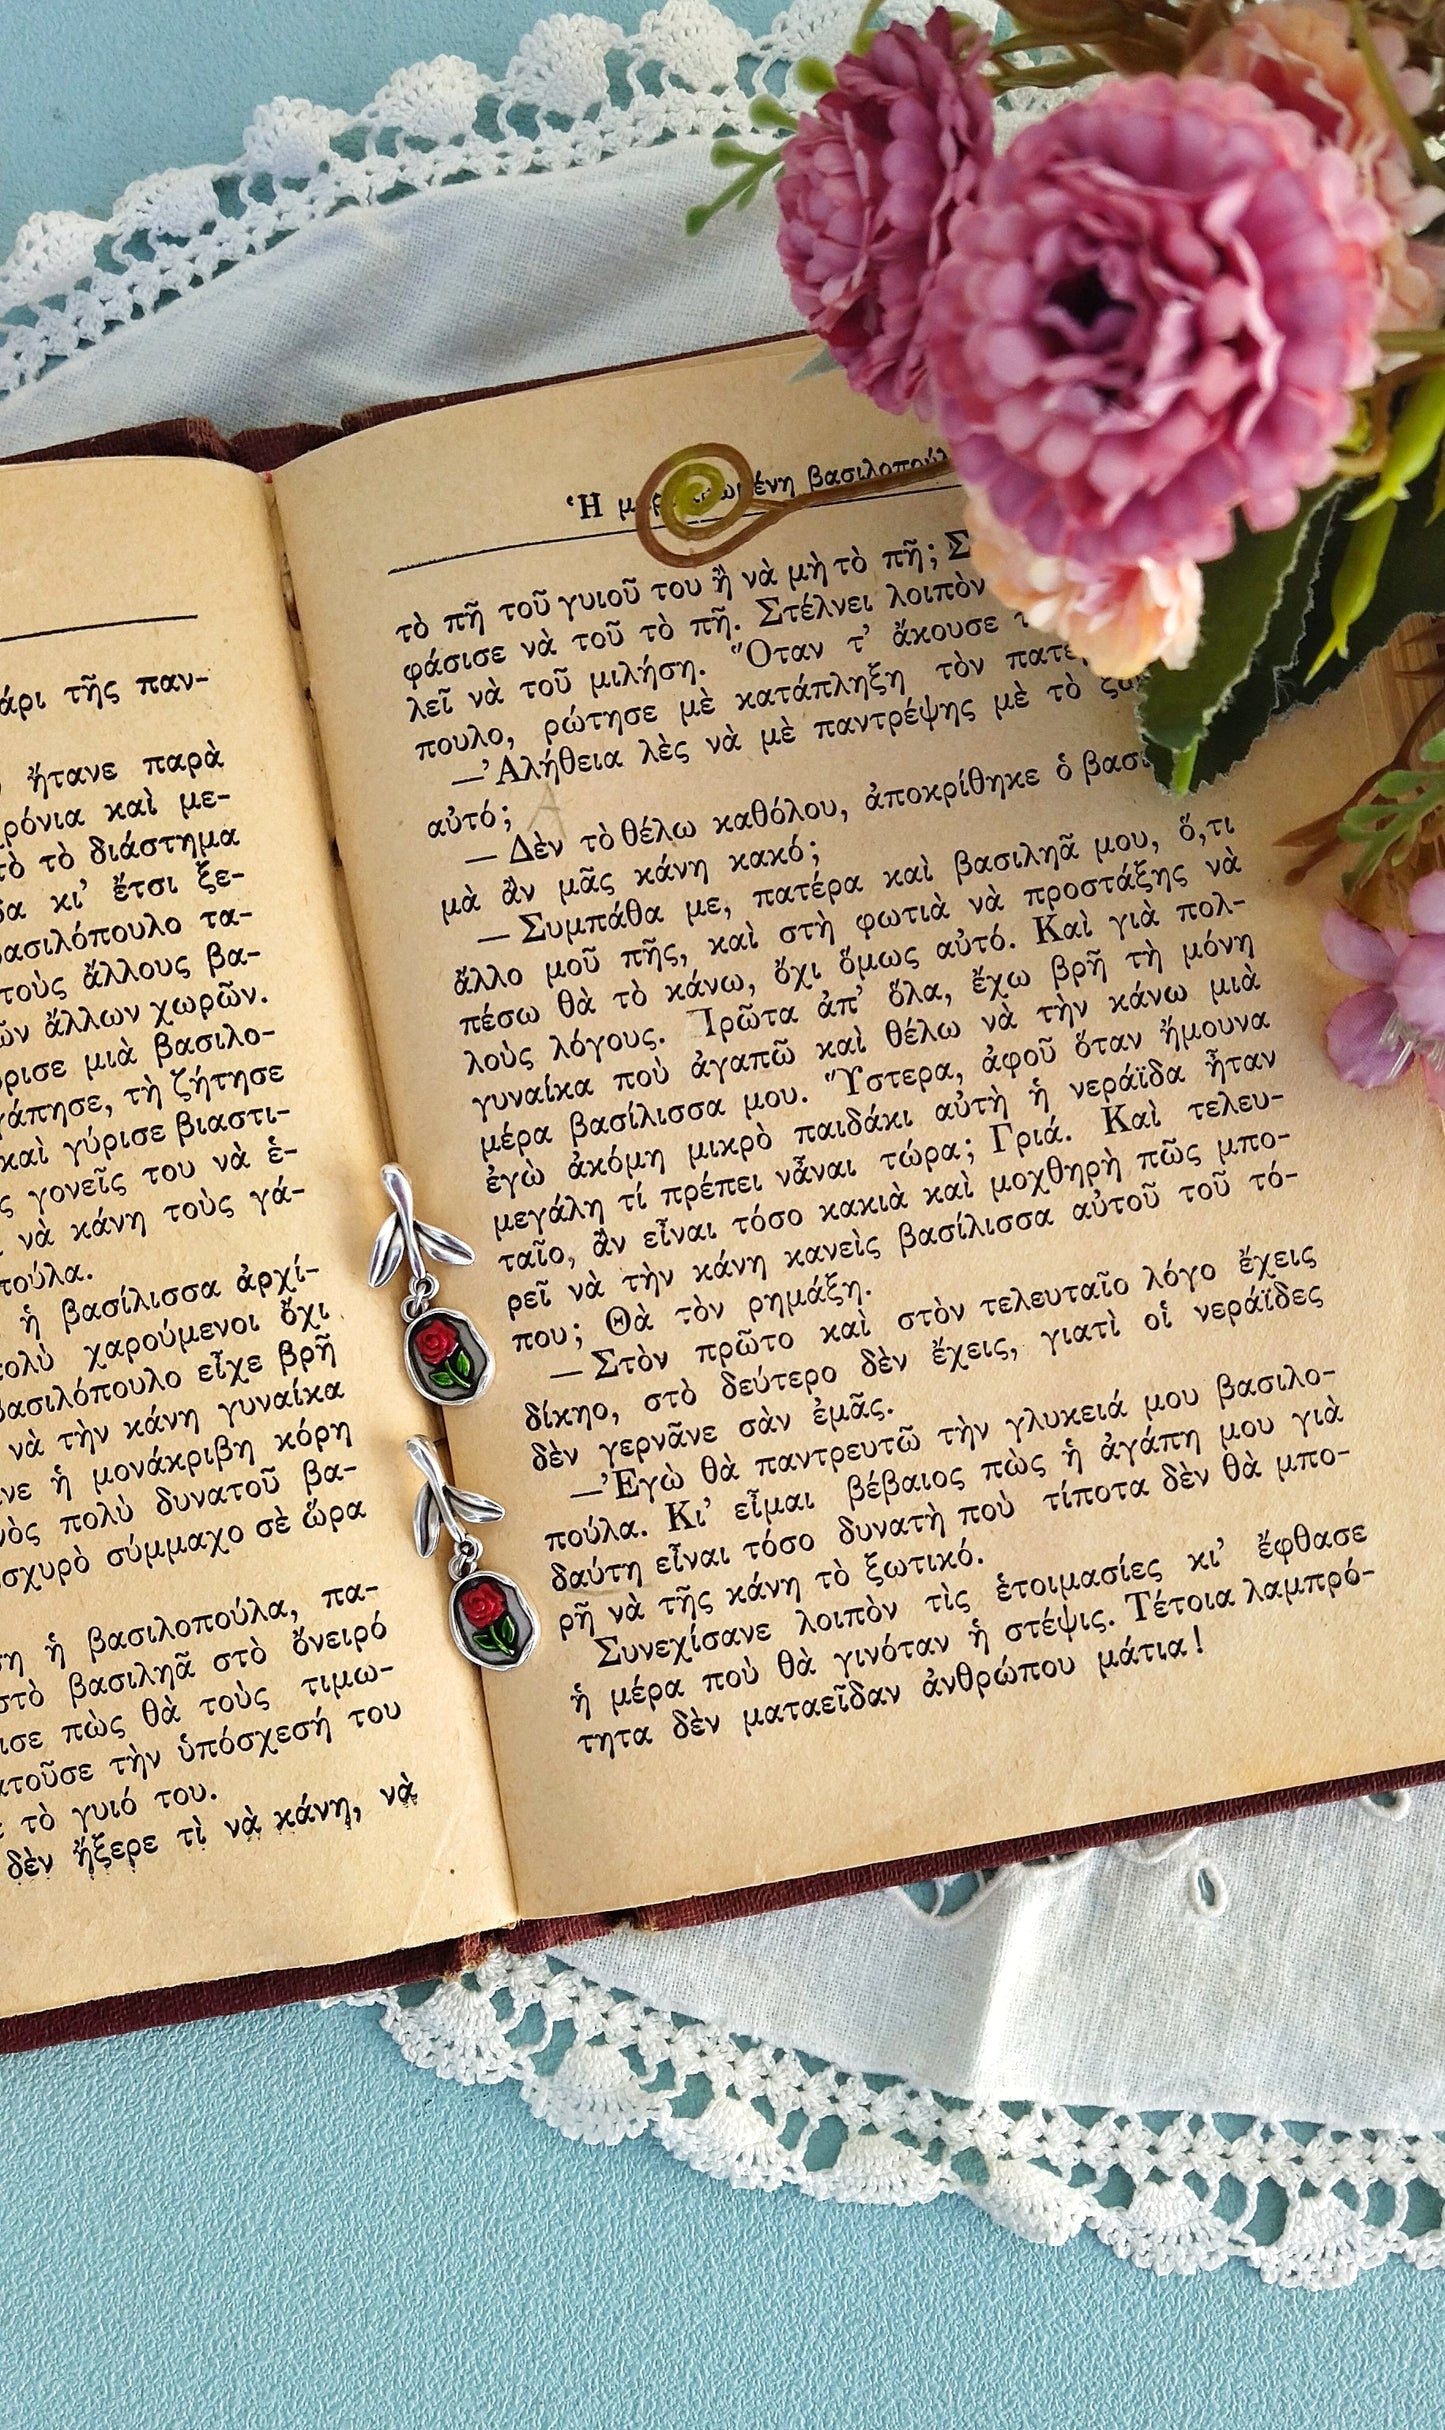 άρι τῆς παν-
ἤτανε παρὰ
ρόνια καὶ με-
τὸ τὸ διάστημα
δα κι' ἔτσι ξε-
βασιλόπουλο τα-
τοὺς ἄλλους βα-
ῶν ἄλλων χωρῶν.
ρισε μιὰ βασιλο-
γάπησε, τὴ ζήτησε
καὶ γύρισε βιαστι-
ς γονεῖς του νὰ ἑ-
νὰ κάνη τοὺς γά-
πούλα.
ἡ βασίλισσα ἀρχί-
πολὺ χαρούμενοι ὄχι
βασιλόπουλο εἶχε βρῆ
νὰ τὴν κάνη γυναίκα
ανε ἡ μονάκριβη κόρη
νὸς πολὺ δυνατοῦ βα-
σχυρὸ σύμμαχο σὲ ὥρα
ση ἡ βασιλοπούλα, πα-
στὸ βασιληᾶ στὸ ὄνειρό
ισε πὼς θὰ τοὺς τιμω-
ατοῦσε τὴν ὑπόσχεσή του
ε τὸ γυιό του.
δὲν ἤξερε τὶ νὰ κάνη, νὰ
Ἡ βασιλοπούλ
τὸ πῆ τοῦ γυιοῦ του ἢ νὰ μὴ τὸ πῆ; Σ
φάσισε νὰ τοῦ τὸ πῆ. Στέλνει λοιπὸν
λεῖ νὰ τοῦ μιλήση. Ὅταν τ' ἄκουσε
πουλο, ρώτησε μὲ κατάπληξη τὸν πατέ
—Ἀλήθεια λὲς νὰ μὲ παντρέψης μὲ τὸ ξω
αὐτό;
— Δὲν τὸ θέλω καθόλου, ἀποκρίθηκε ὁ βασι
μὰ ἂν μᾶς κάνη κακό;
— Συμπάθα με, πατέρα καὶ βασιληᾶ μου, ὅ,τι
ἄλλο μοῦ πῆς, καὶ στὴ φωτιὰ νὰ προστάξης νὰ
πέσω θὰ τὸ κάνω, ὄχι ὅμως αὐτό. Καὶ γιὰ πολ-
λοὺς λόγους. Πρῶτα ἀπ' ὅλα, ἔχω βρῆ τὴ μόνη
γυναίκα ποὺ ἀγαπῶ καὶ θέλω νὰ τὴν κάνω μιὰ
μέρα βασίλισσα μου. Ὕστερα, ἀφοῦ ὅταν ἤμουνα
ἐγὼ ἀκόμη μικρὸ παιδάκι αὐτὴ ἡ νεράϊδα ἦταν
μεγάλη τί πρέπει νἆναι τώρα; Γριά. Καὶ τελευ-
ταῖο, ἂν εἶναι τόσο κακιὰ καὶ μοχθηρὴ πῶς μπο-
ρεῖ νὰ τὴν κάνη κανεὶς βασίλισσα αὐτοῦ τοῦ τό-
που; Θὰ τὸν ρημάξη.
— Στὸν πρῶτο καὶ στὸν τελευταῖο λόγο ἔχεις
δίκηο, στὸ δεύτερο δὲν ἔχεις, γιατὶ οἱ νεράϊδες
δὲν γερνᾶνε σὰν ἐμᾶς.
—Ἐγὼ θὰ παντρευτῶ τὴν γλυκειά μου βασιλο-
πούλα. Κι' εἶμαι βέβαιος πὼς ἡ ἀγάπη μου γιὰ
δαύτη εἶναι τόσο δυνατὴ ποὺ τίποτα δὲν θὰ μπο-
ρῆ νὰ τῆς κάνη τὸ ξωτικό.
Συνεχίσανε λοιπὸν τὶς ἑτοιμασίες κι' ἔφθασε
ἡ μέρα ποὺ θὰ γινόταν ἡ στέψις. Τέτοια λαμπρό-
τητα δὲν ματαεῖδαν ἀνθρώπου μάτια!